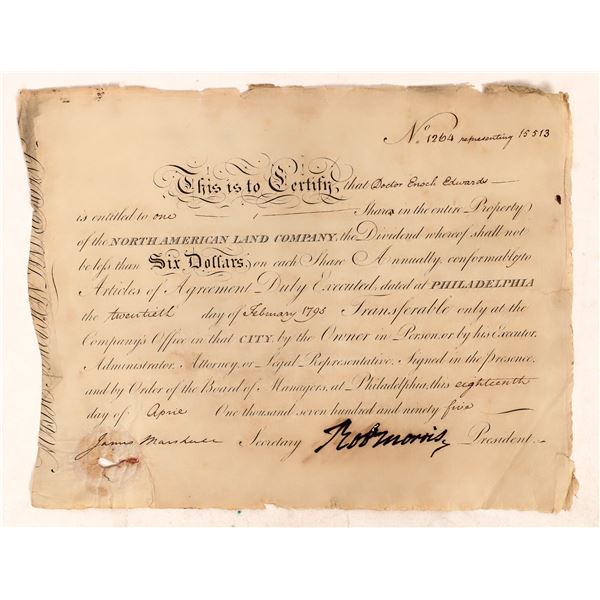 No 1264 representing 15513
This is to Certify, that Doctor Enoch Edwards
is entitled to one Share in the entire Property
of the NORTH AMERICAN LAND COMPANY, the Dividend whereof shall not
be less than Six Dollars, on each Share Annually, conformably to
Articles of Agreement Duly Executed, dated at PHILADELPHIA
the twentieth day of February 1795 Transferable only at the
Company's Office in that CITY, by the Owner in Person, or by his Executor,
Administrator, Attorney, or Legal Representative. Signed in the presence,
and by Order of the Board of Managers, at Philadelphia, this eighteenth
day of April One thousand seven hundred and ninety five
James Marshall Secretary Robt Morris President